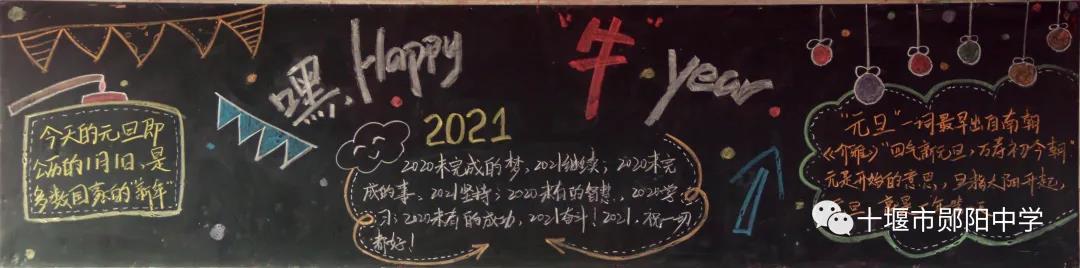 嘿, Happy "牛" year
今天的元旦即
公历的1月1日,是
多数国家的"新年"
2021
2020未完成的梦,2021继续;2020未完
成的事、2021坚持;2020未有的智慧、2021学
习;2020未有的成功,2021奋斗!2021,祝一切
都好!
"元旦"一词最早出自南朝
《介雅》"四气新元旦,万寿初今朝"
元是开始的意思,旦指太阳升起,
十堰市郧阳中学